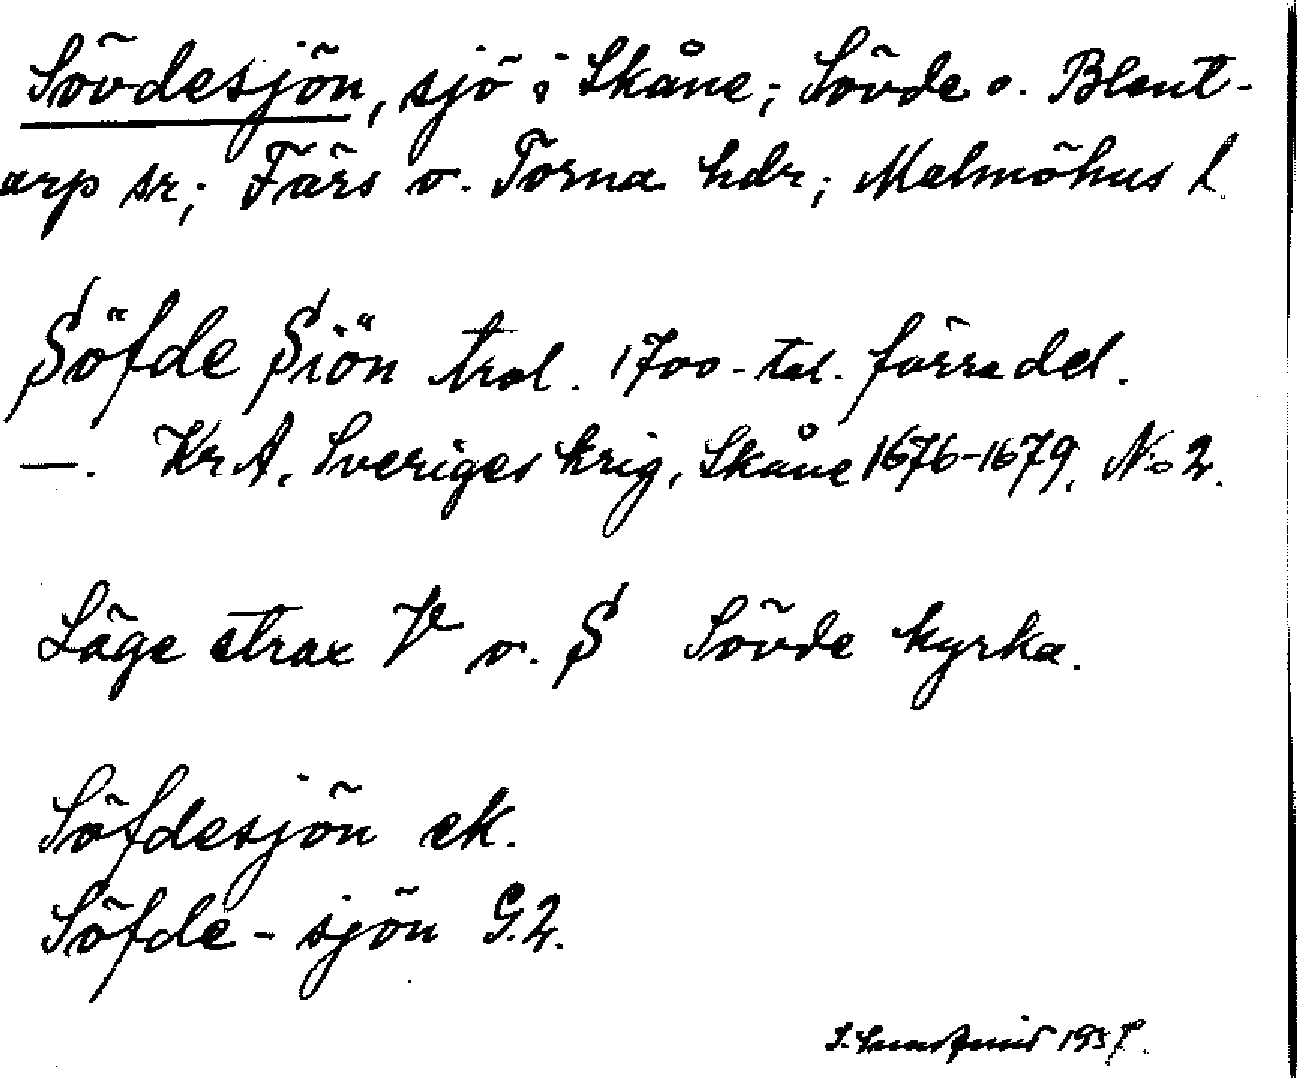 Sövdesjön, sjö i Skåne; Sövde o. Blent-
arp sr; Färs o. Torna hdr; Malmöhus l.
Söfde Siön trol. 1700-tal. förra del.
—. KrA, Sveriges krig, Skåne 1676-1679. No 2.
Läge strax V o. S Sövde kyrka.
Söfdesjön ek.
Söfde-sjön G.2.
1937.